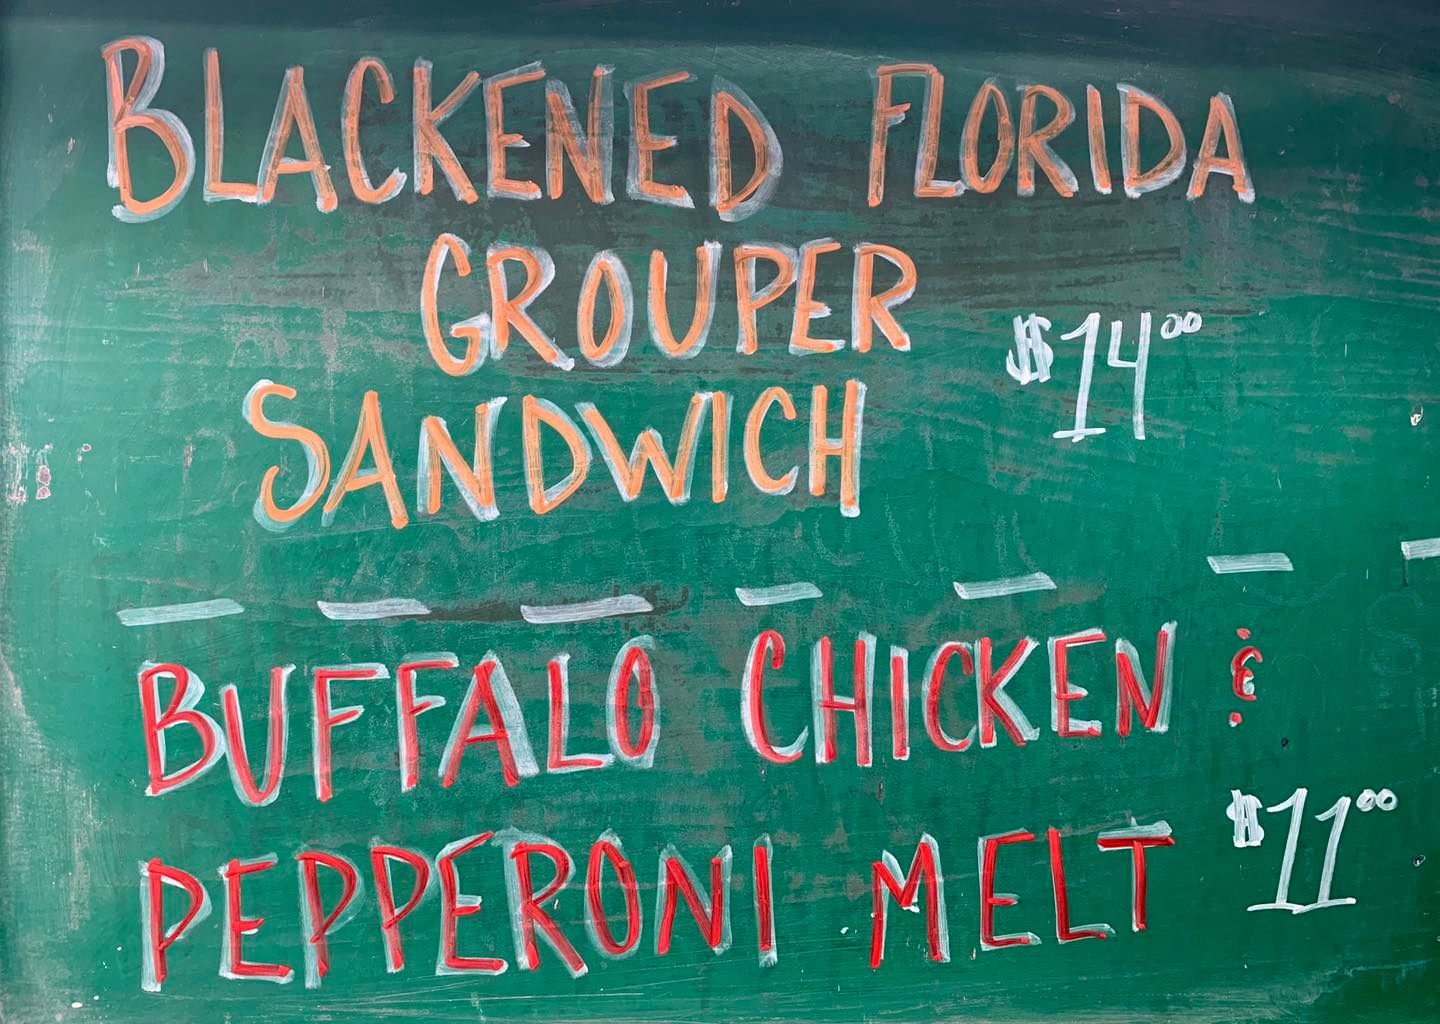 BLACKENED FLORIDA
GROUPER
$14⁰⁰
SANDWICH
BUFFALO CHICKEN &
PEPPERONI MELT
$11⁰⁰